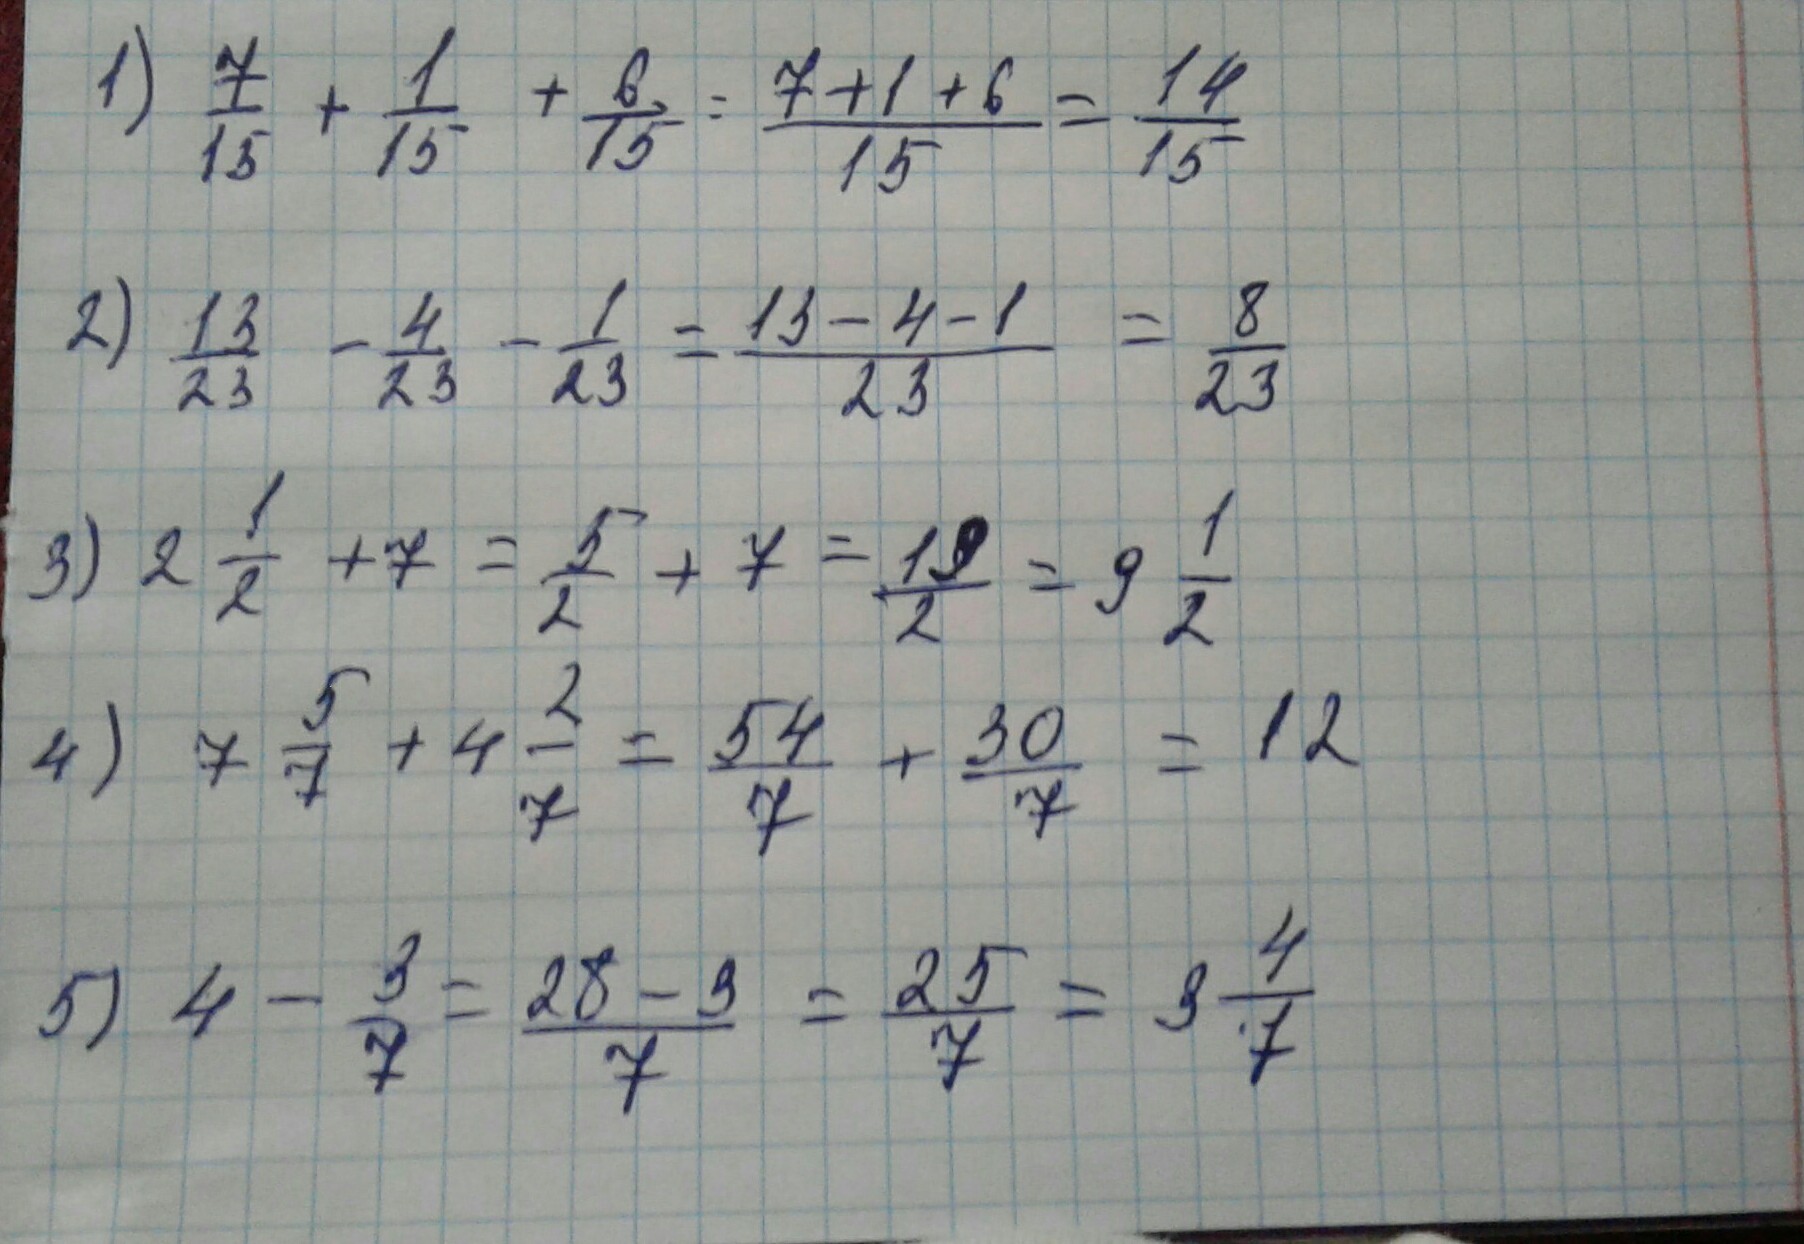 1) 7/15 + 1/15 + 6/15 = 7+1+6/15 = 14/15
2) 13/23 - 4/23 - 1/23 = 13-4-1/23 = 8/23
3) 2 1/2 + 7 = 5/2 + 7 = 19/2 = 9 1/2
4) 7 5/7 + 4 2/7 = 54/7 + 30/7 = 12
5) 4 - 3/7 = 28-3/7 = 25/7 = 3 4/7